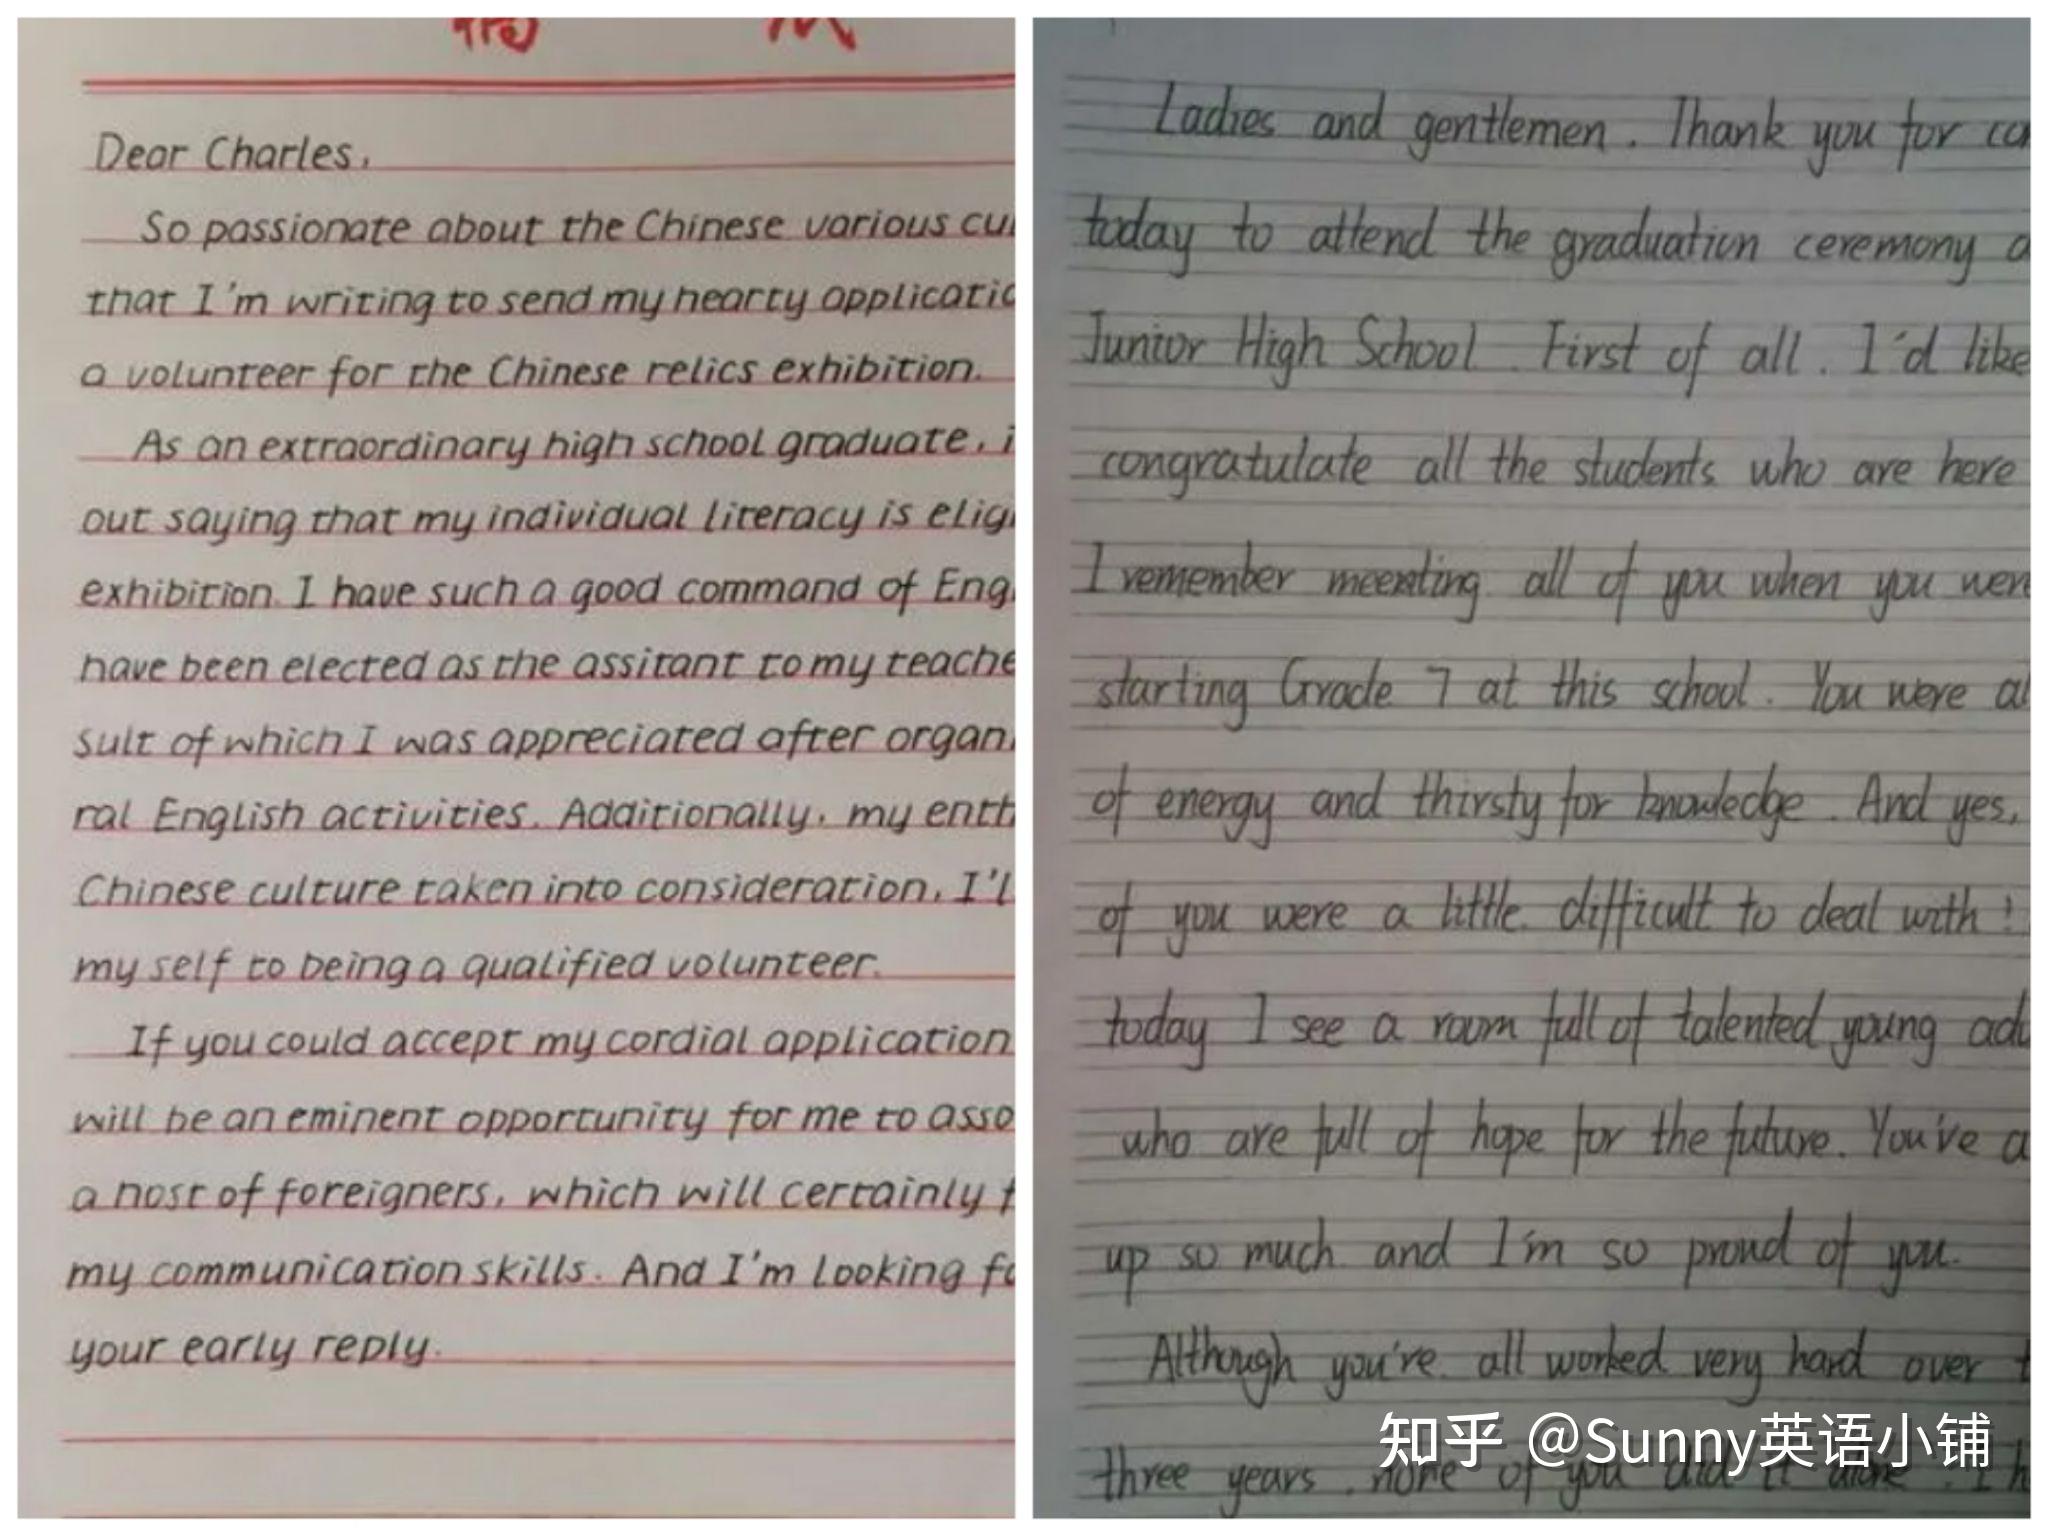 Dear Charles,
So passionate about the Chinese various cul
that I'm writing to send my hearty applicatio
a volunteer for the Chinese relics exhibition.
As an extraordinary high school graduate, i
out saying that my individual literacy is elig
exhibition. I have such a good command of Eng
have been elected as the assitant to my teache
sult of which I was appreciated after organ
ral English activities. Additionally, my enth
Chinese culture taken into consideration, I'l
my self to being a qualified volunteer.
If you could accept my cordial application
will be an eminent opportunity for me to asso
a host of foreigners, which will certainly f
my communication skills. And I'm looking fo
your early reply.
Ladies and gentlemen. Thank you for co
today to attend the graduation ceremony a
Junior High School. First of all. I'd like
congratulate all the students who are here
I remember meeting all of you when you were
starting Grade 7 at this school. You were al
of energy and thirsty for knowledge. And yes,
of you were a little difficult to deal with!
today I see a room full of talented young adu
who are full of hope for the future. You've a
up so much and I'm so proud of you.
Although you're all worked very hard over t
three years, none of you did it alone. I h
知乎 @Sunny英语小铺